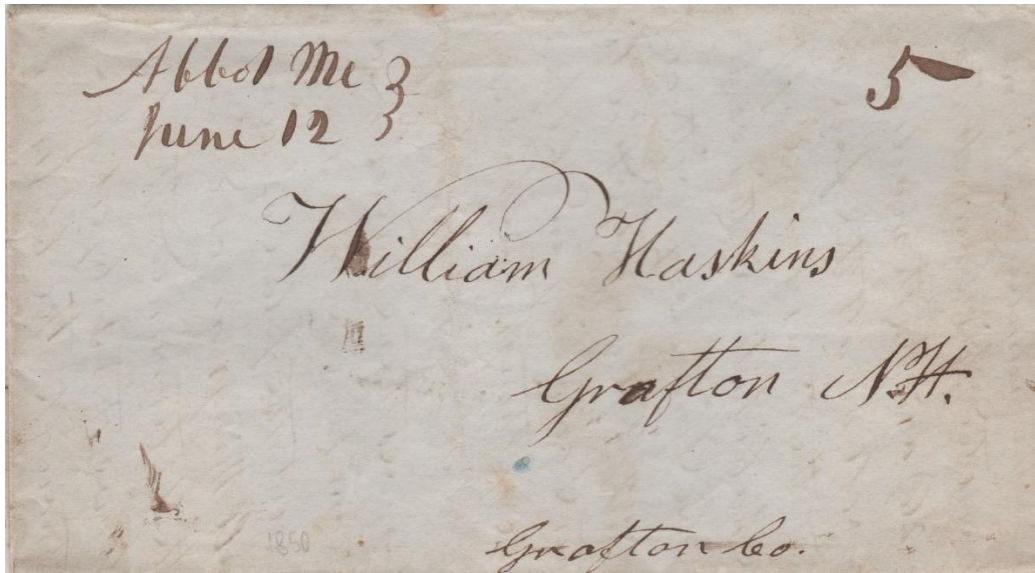 Abbot Me
June 12
5
William Haskins
Grafton N.H.
Grafton Co.
1850